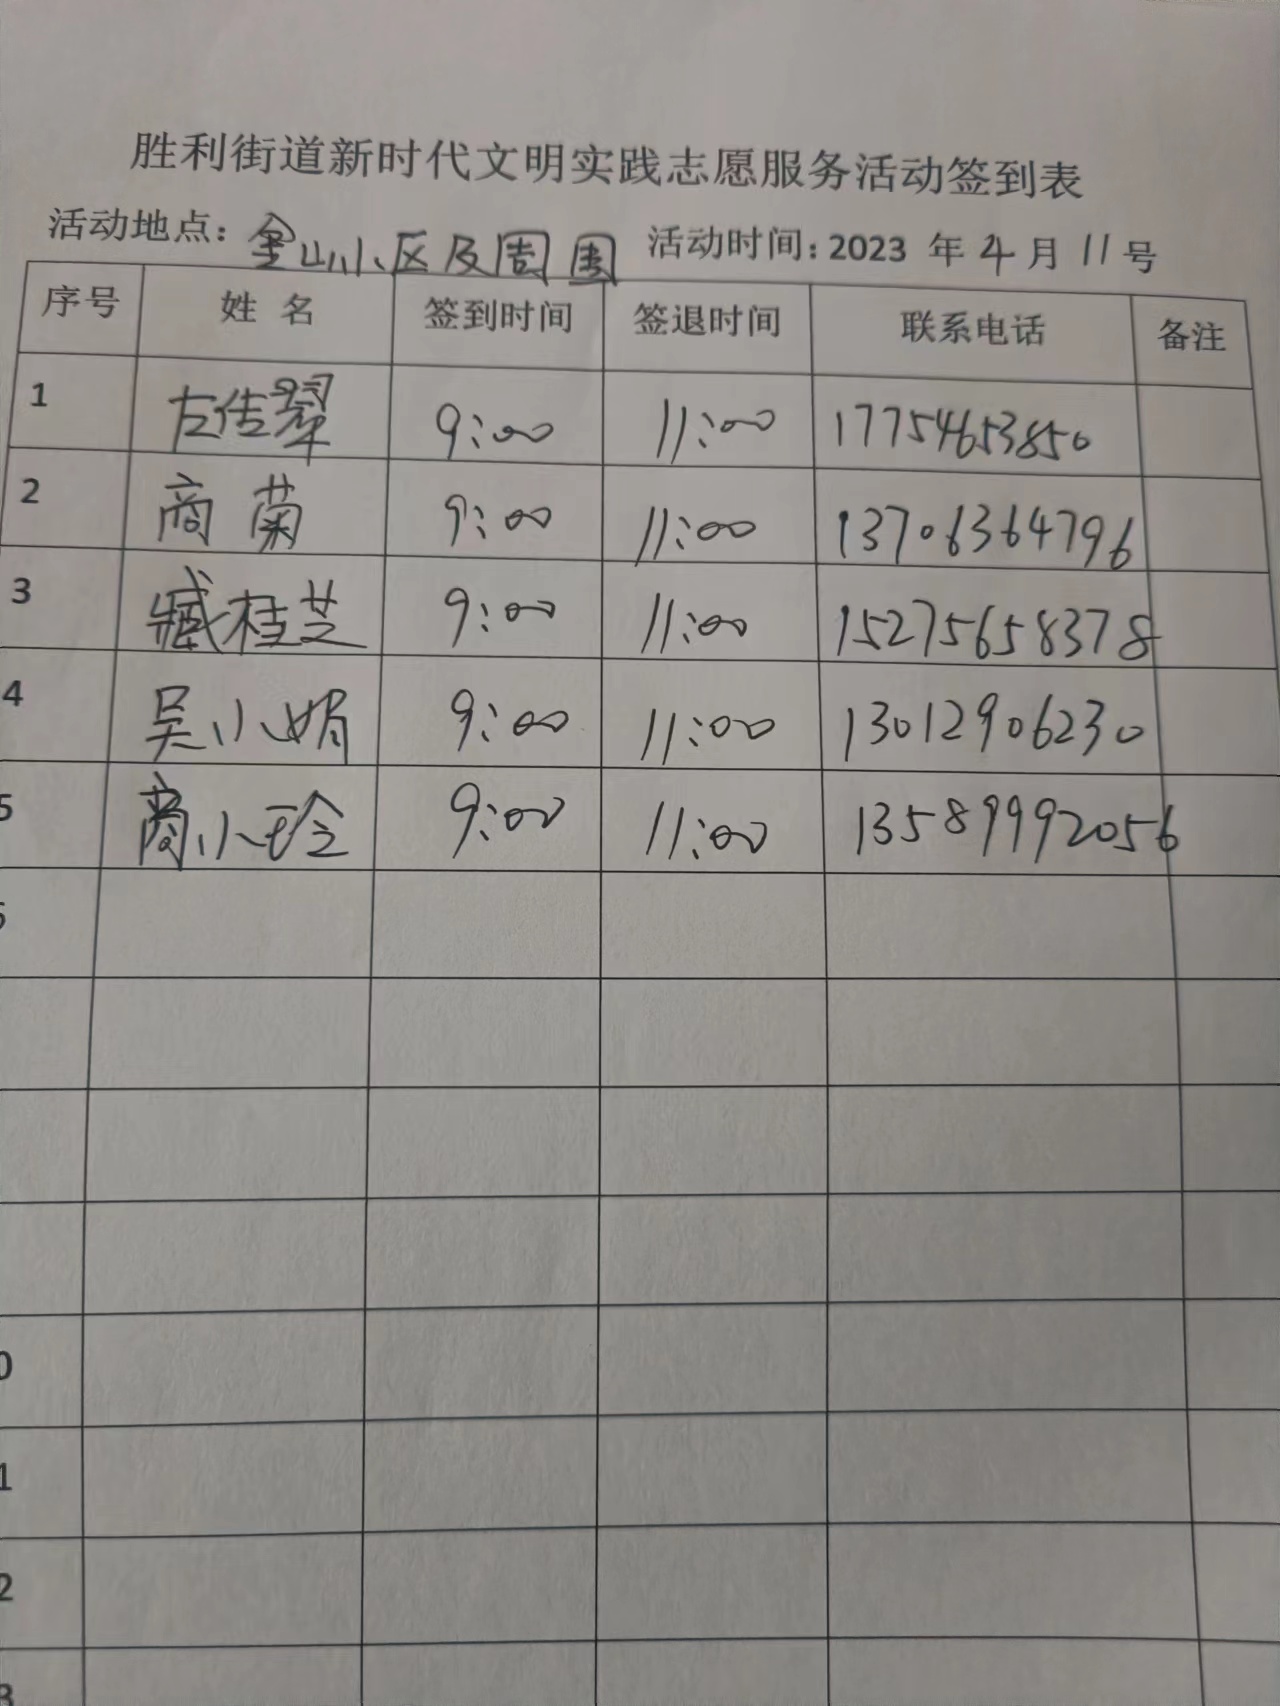 胜利街道新时代文明实践志愿服务活动签到表
活动地点：金山小区及周围 活动时间：2023 年 4 月 11 号
序号 姓 名 签到时间 签退时间 联系电话 备注
1 左传翠 9:00 11:00 17754653850
2 商菊 9:00 11:00 13706364796
3 臧桂芝 9:00 11:00 15275658378
4 吴小娟 9:00 11:00 13012906230
5 商小玲 9:00 11:00 13589992056
0
1
2
3